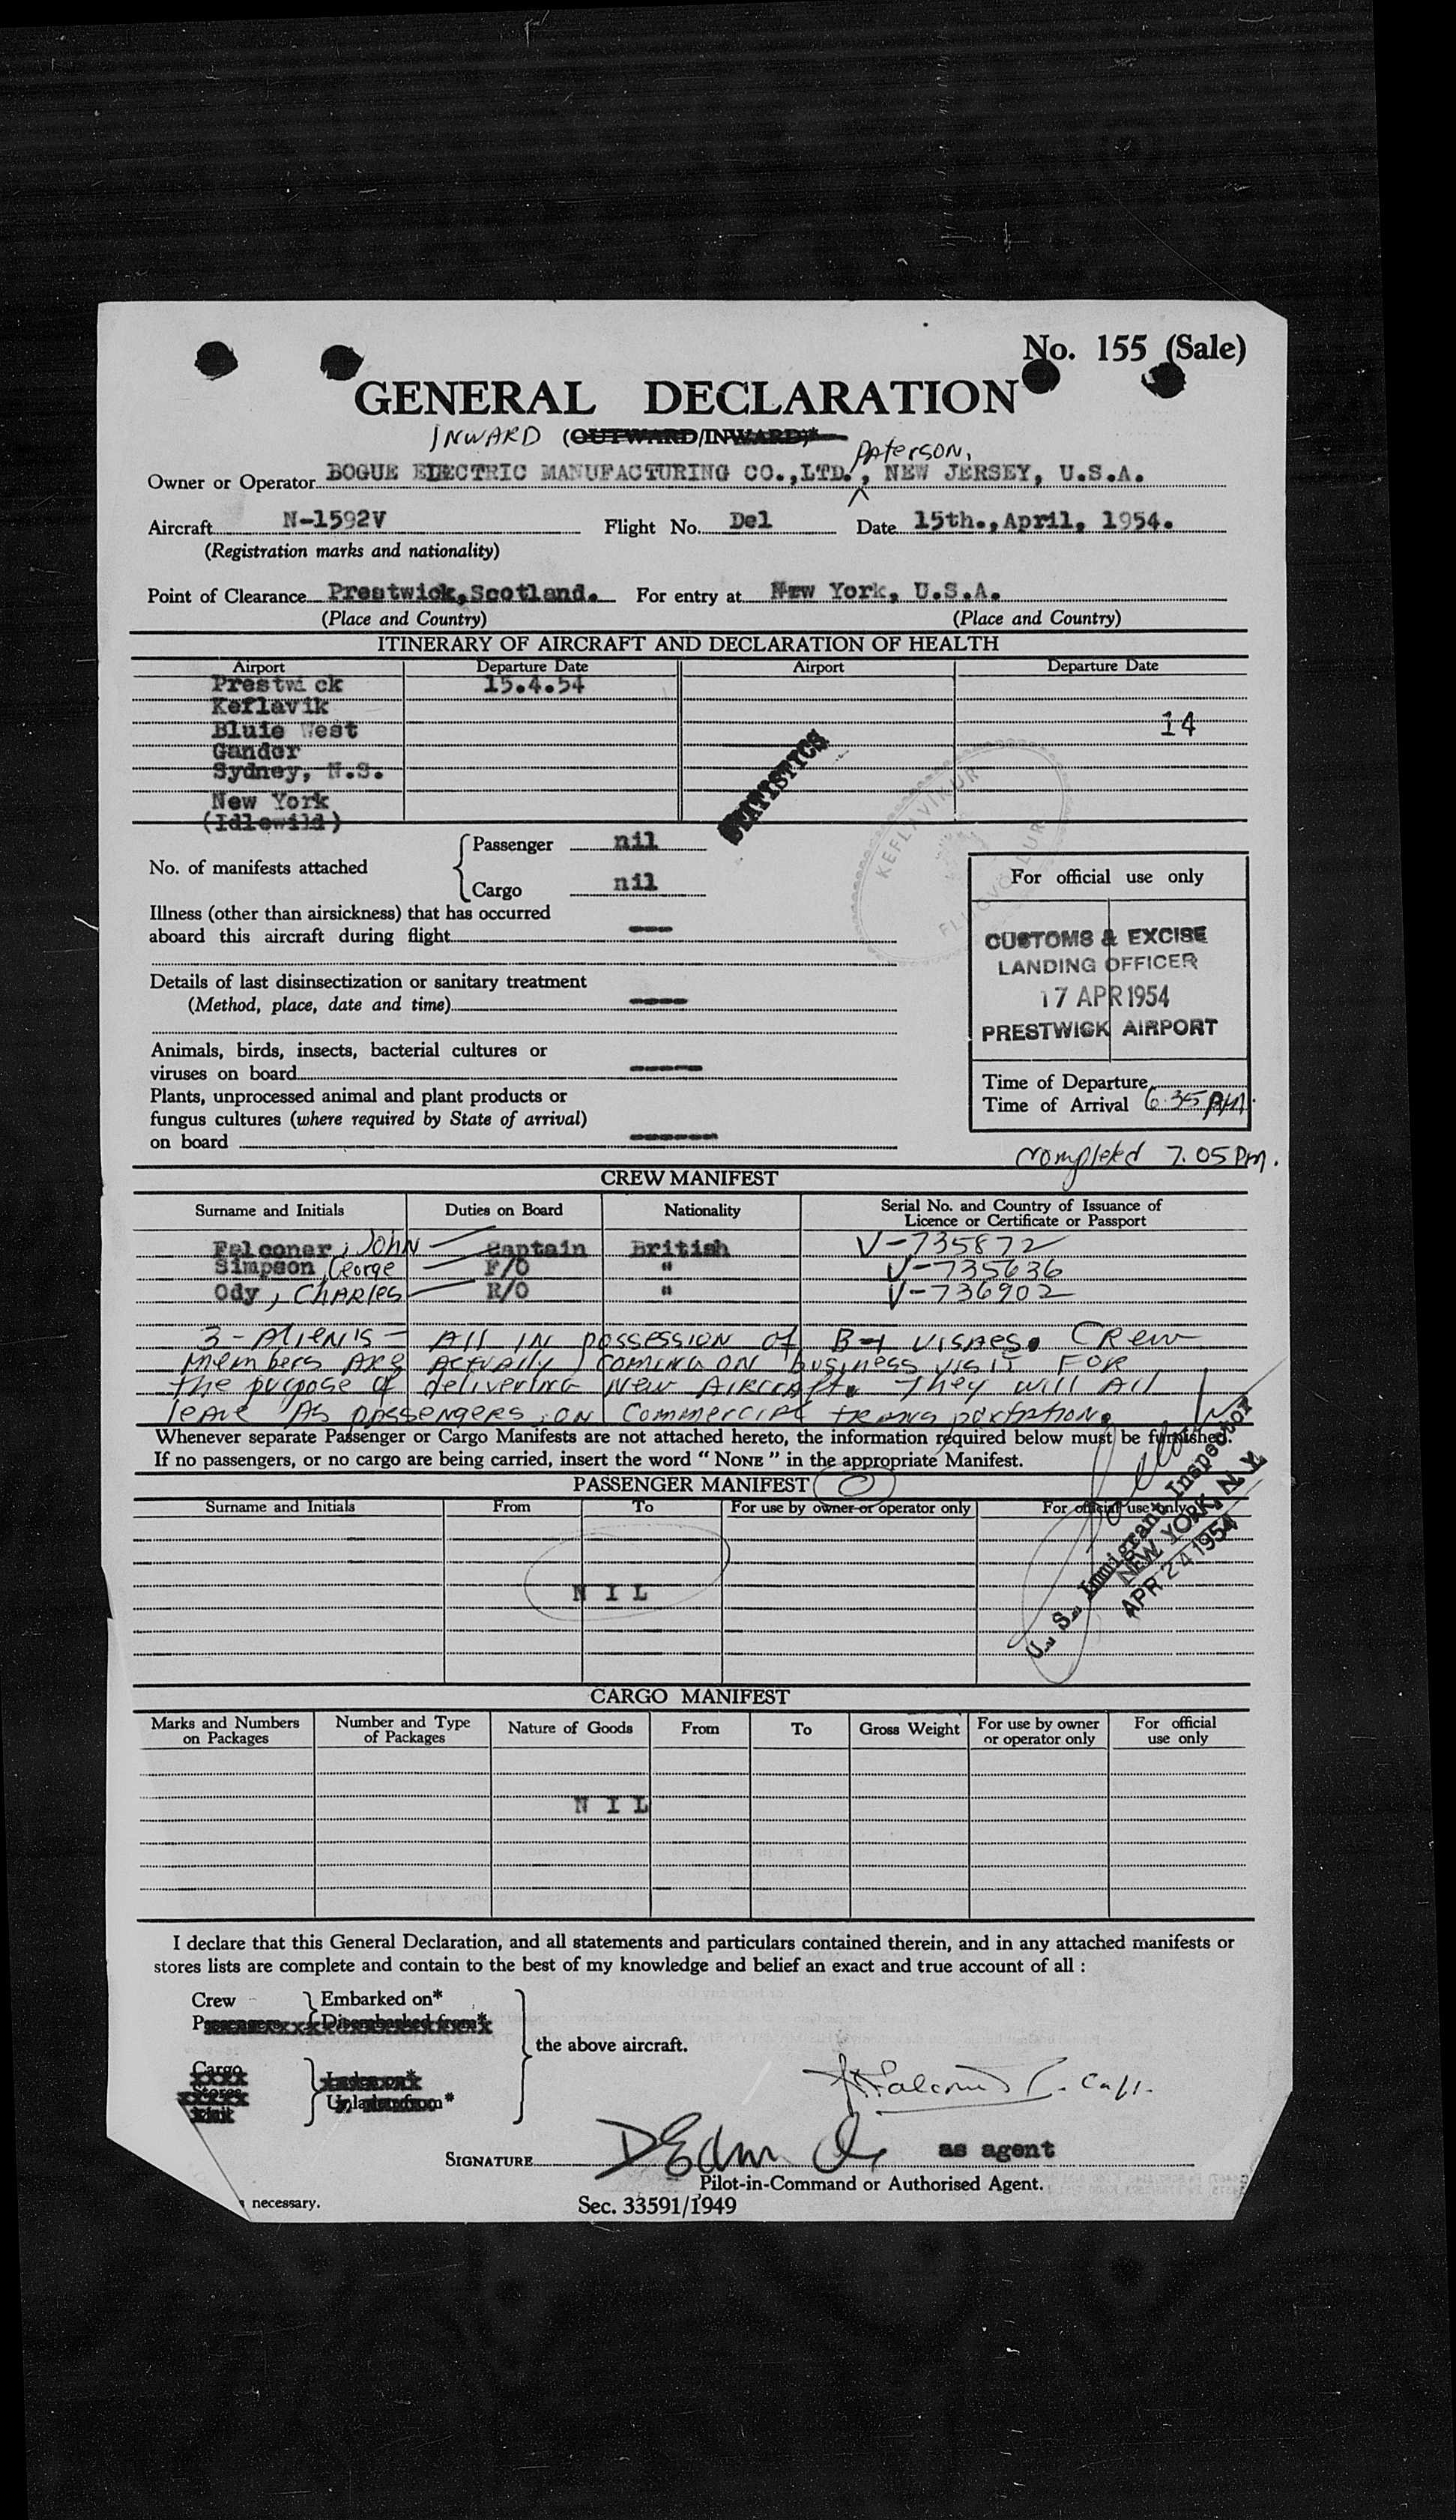 No. 155 (Sale)
GENERAL DECLARATION
INWARD (OUTWARD/INWARD)*
PATERSON,
Owner or Operator BOGUE ELECTRIC MANUFACTURING CO.,LTD., NEW JERSEY, U.S.A.
Aircraft N-1592V Flight No. Del Date 15th.,April, 1954.
(Registration marks and nationality)
Point of Clearance Prestwick,Scotland. For entry at New York, U.S.A.
(Place and Country) (Place and Country)
ITINERARY OF AIRCRAFT AND DECLARATION OF HEALTH
Airport Departure Date Airport Departure Date
Prestwick 15.4.54
Keflavik
Bluie West 14
Gander
Sydney, N.S.
New York
(Idlewild)
STATISTICS
KEFLAVIKUR
No. of manifests attached
Passenger nil
Cargo nil
Illness (other than airsickness) that has occurred
aboard this aircraft during flight
Details of last disinsectization or sanitary treatment
(Method, place, date and time)
Animals, birds, insects, bacterial cultures or
viruses on board
Plants, unprocessed animal and plant products or
fungus cultures (where required by State of arrival)
on board
For official use only
CUSTOMS & EXCISE
LANDING OFFICER
17 APR 1954
PRESTWICK AIRPORT
Time of Departure
Time of Arrival 6.35 PM.
Completed 7.05 Pm.
CREW MANIFEST
Surname and Initials Duties on Board Nationality Serial No. and Country of Issuance of
Licence or Certificate or Passport
Falconer, John Captain British V-735872
Simpson, George F/O " V-735636
Ody, CHARles R/O " V-736902
3-Alien's - All IN possession of B-1 visaes. Crew
Members ARE ActuAlly coming on business visit FOR
the purpose of delivering New AIRCRAft. They will All
leAve As pAssengers on CommerciAl trAnsportAtion.
Whenever separate Passenger or Cargo Manifests are not attached hereto, the information required below must be furnished.
If no passengers, or no cargo are being carried, insert the word "NONE" in the appropriate Manifest.
PASSENGER MANIFEST 0
Surname and Initials From To For use by owner or operator only For official use only
N I L
U. S. Immigrant Inspector
NEW YORK, N. Y.
APR 24 1954
CARGO MANIFEST
Marks and Numbers on Packages Number and Type of Packages Nature of Goods From To Gross Weight For use by owner or operator only For official use only
N I L
I declare that this General Declaration, and all statements and particulars contained therein, and in any attached manifests or
stores lists are complete and contain to the best of my knowledge and belief an exact and true account of all :
Crew Embarked on*
Passengers Disembarked from*
the above aircraft.
Cargo
Stores
Unladen from*
Capt.
SIGNATURE as agent
Pilot-in-Command or Authorised Agent.
necessary.
Sec. 33591/1949